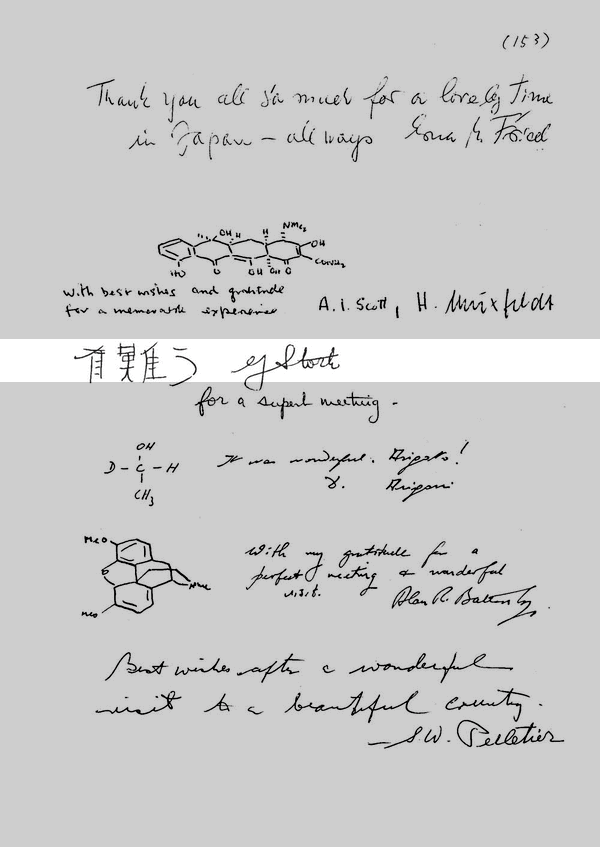 (153)
Thank you all so much for a lovely time
in Japan – all ways
OH H H NMe2
OH
HO O OH OH O CONH2
With best wishes and gratitude
for a memorable experience A.I. Scott, H. Muxfeldt
有難う G Stork
for a superb meeting –
OH
D – C – H
CH3
It was wonderful. Arigato!
D. Arigoni
MeO
O
NMe
MeO
With my gratitude for a
perfect meeting & wonderful
visit. Alan R. Battersby.
Best wishes after a wonderful
visit to a beautiful country.
– S.W. Pelletier